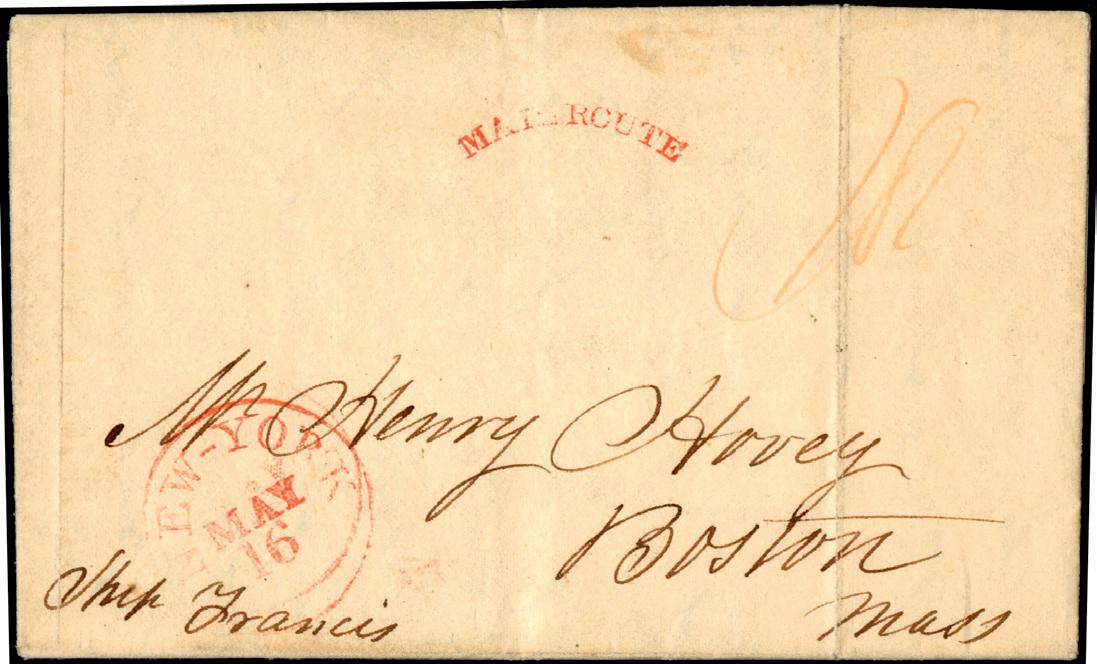 MAIL ROUTE
Mr Henry Hovey
Boston
Mass
NEW-YORK
MAY
16
Ship Francis